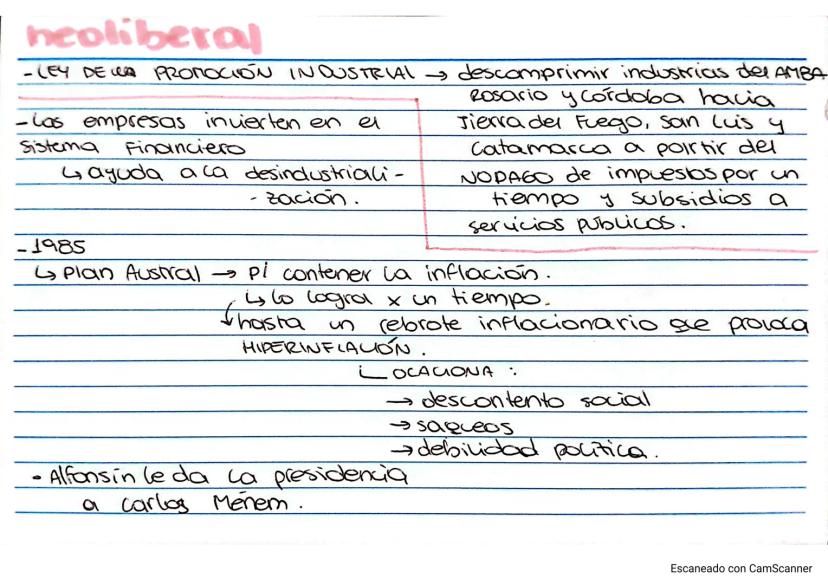 neoliberal
- LEY DE LA PROMOCIÓN INDUSTRIAL → descomprimir industrias del AMBA
Rosario y Córdoba hacia
Tierra del Fuego, San Luis y
Catamarca a partir del
NO PAGO de impuestos por un
tiempo y subsidios a
servicios públicos.
- Las empresas invierten en el
sistema financiero
↳ ayuda a la desindustriali -
- zación.
- 1985
↳ Plan Austral → p/ contener la inflación.
↳ lo logra x un tiempo.
↓ hasta un rebrote inflacionario que provoca
HIPERINFLACIÓN.
OCACIONA :
→ descontento social
→ saqueos
→ debilidad política.
• Alfonsín le da la presidencia
a Carlos Ménem.
Escaneado con CamScanner